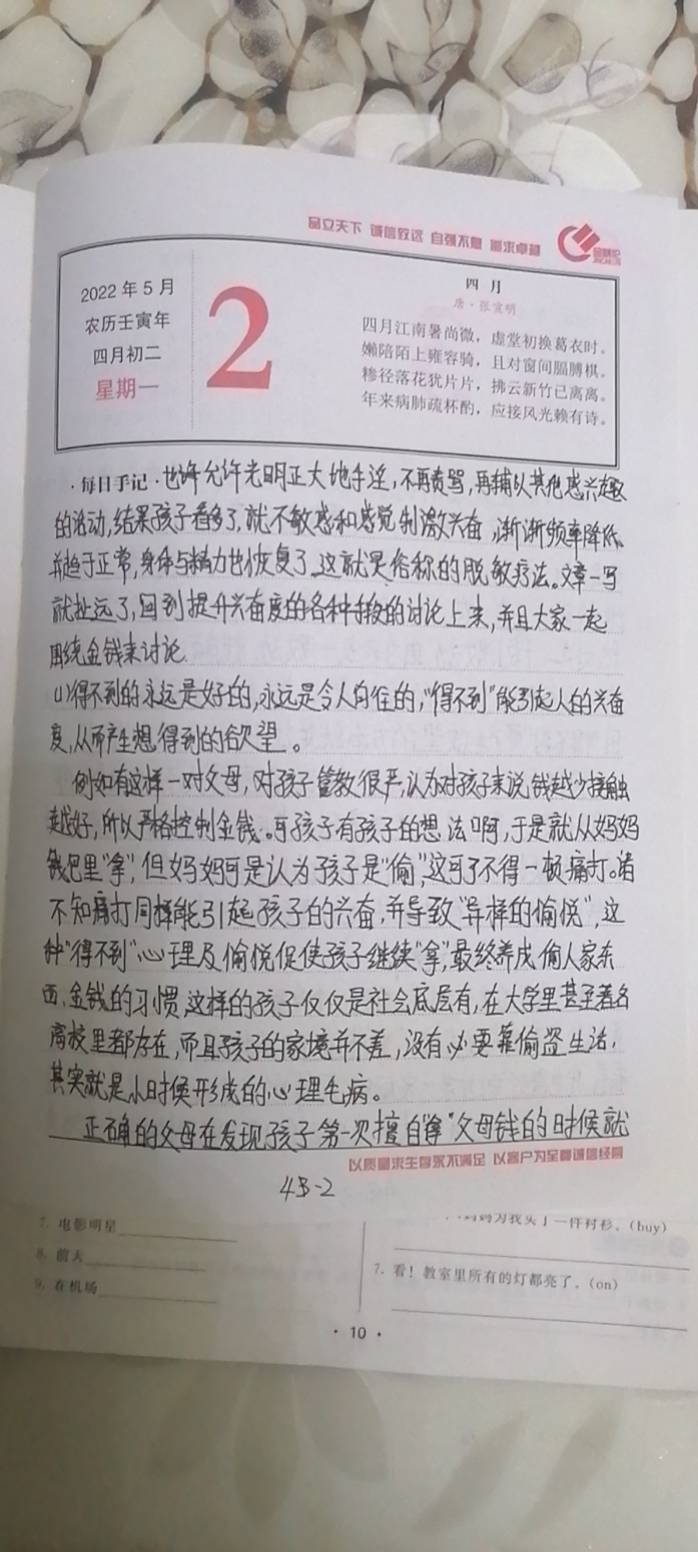 品立天下 诚信致远 自强不息 追求卓越
2022年5月
农历壬寅年
四月初二
星期一
2
四月
唐·张宣明
四月江南暑尚微，虚堂初换葛衣时。
嬾陪陌上雍容骑，且对窗间腷膊棋。
糁径落花犹片片，拂云新竹已离离。
年来病肺疏杯酌，应接风光赖有诗。
·每日手记·也许允许光明正大地手淫,不再责骂,再辅以其他感兴趣
的活动,结果孩子看多了,就不敏感和感觉刺激兴奋,渐渐频率降低
并趋于正常,身体与精力也恢复了,这就是俗称的脱敏疗法。文章一写
就扯远了,回到提升兴奋度的各种手段的讨论上来,并且大家一起
围绕金钱来讨论.
(1)得不到的永远是好的,永远是令人向往的,"得不到"能引起人的兴奋
度,从而产生想得到的欲望。
例如有这样一对父母,对孩子管教很严,认为对孩子来说,钱越少接触
越好,所以严格控制金钱。可孩子有孩子的想法啊,于是就从妈妈
钱包里"拿",但妈妈可是认为孩子是"偷",这可了不得一顿痛打。诸
不知痛打同样能引起孩子的兴奋,并导致"异样的愉悦",这
种"得不到"心理及愉悦促使孩子继续"拿",最终养成偷人家东
西、金钱的习惯,这样的孩子仅仅是社会底层有,在大学里甚至著名
高校里都存在,而且孩子的家境并不差,没有必要靠偷盗生活,
其实就是小时候形成的心理毛病。
正确的父母在发现孩子第一次擅自"拿"父母钱的时候就
以质量求生存永不满足 以客户为至尊诚信经营
43-2
7. 电影明星
8. 前天
9. 在机场
妈妈为我买了一件衬衫。(buy)
7. 看！教室里所有的灯都亮了。(on)
· 10 ·